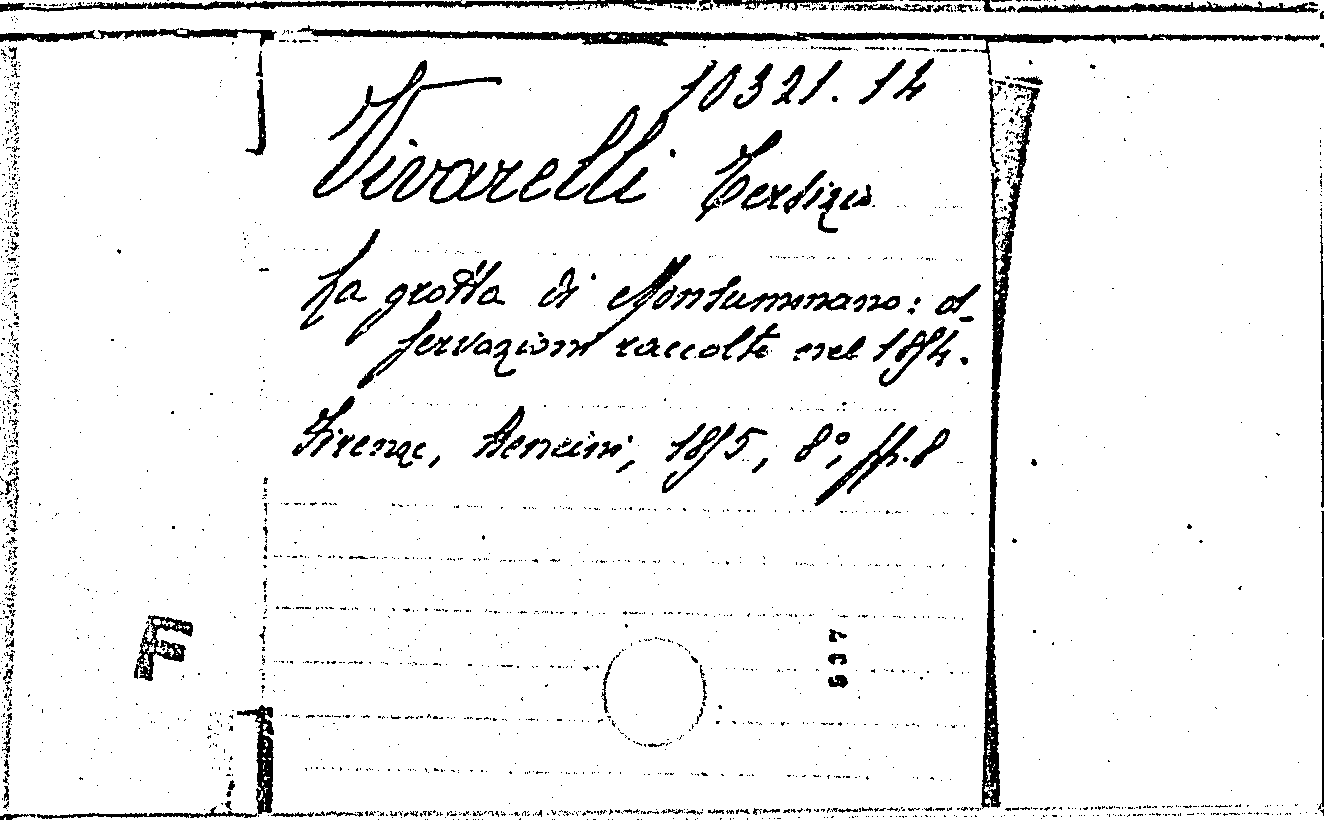 10321. 14
Vivarelli
La grotta di Monsummano: os-
servazioni raccolte nel 1874.
Firenze, Bencini, 1875, 8°, pp. 8
F